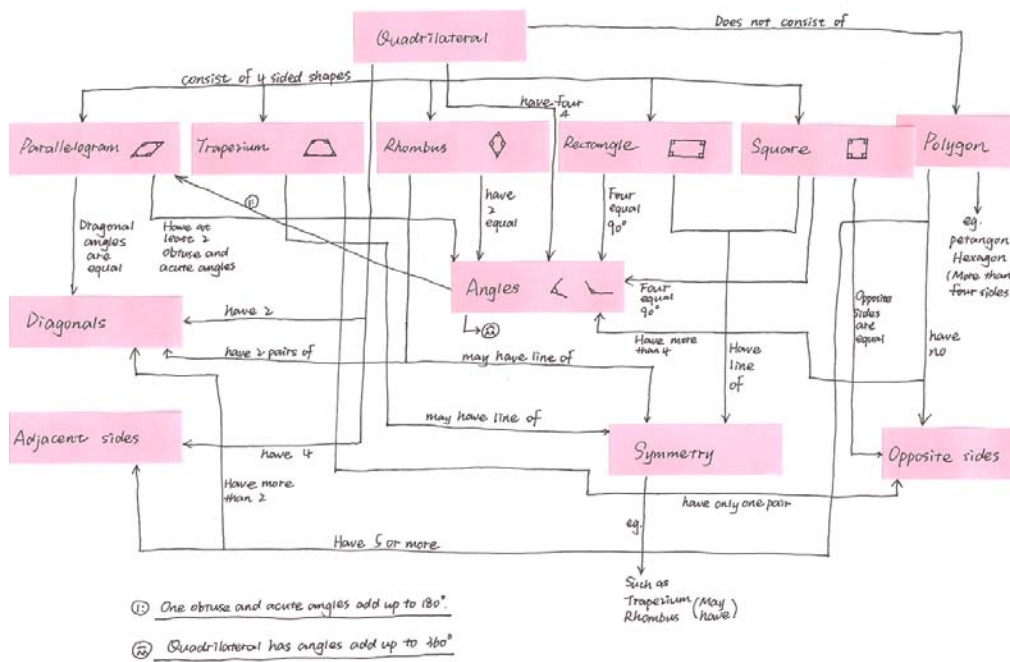 Does not consist of
Quadrilateral
consist of 4 sided shapes
have four
Parallelogram
Traperium
Rhombus
Rectangle
Square
Polygon
①:
Diagonal
angles
are
equal
Have at
least 2
obtuse and
acute angles
have
2
equal
Four
equal
90°
eg.
petangon
Hexagon
(More than
four sides)
Angles
Four
equal
90°
Opposite
sides
are
equal
Diagonals
have 2
have 2 pairs of
may have line of
Have more
than 4
Have
line
of
have
no
may have line of
Adjacent sides
have 4
Symmetry
Opposite sides
Have more
than 2
have only one pair
eg.
Have 5 or more
Such as
Traperium
Rhombus (May
have)
One obtuse and acute angles add up to 180°.
Quadrilateral has angles add up to 360°